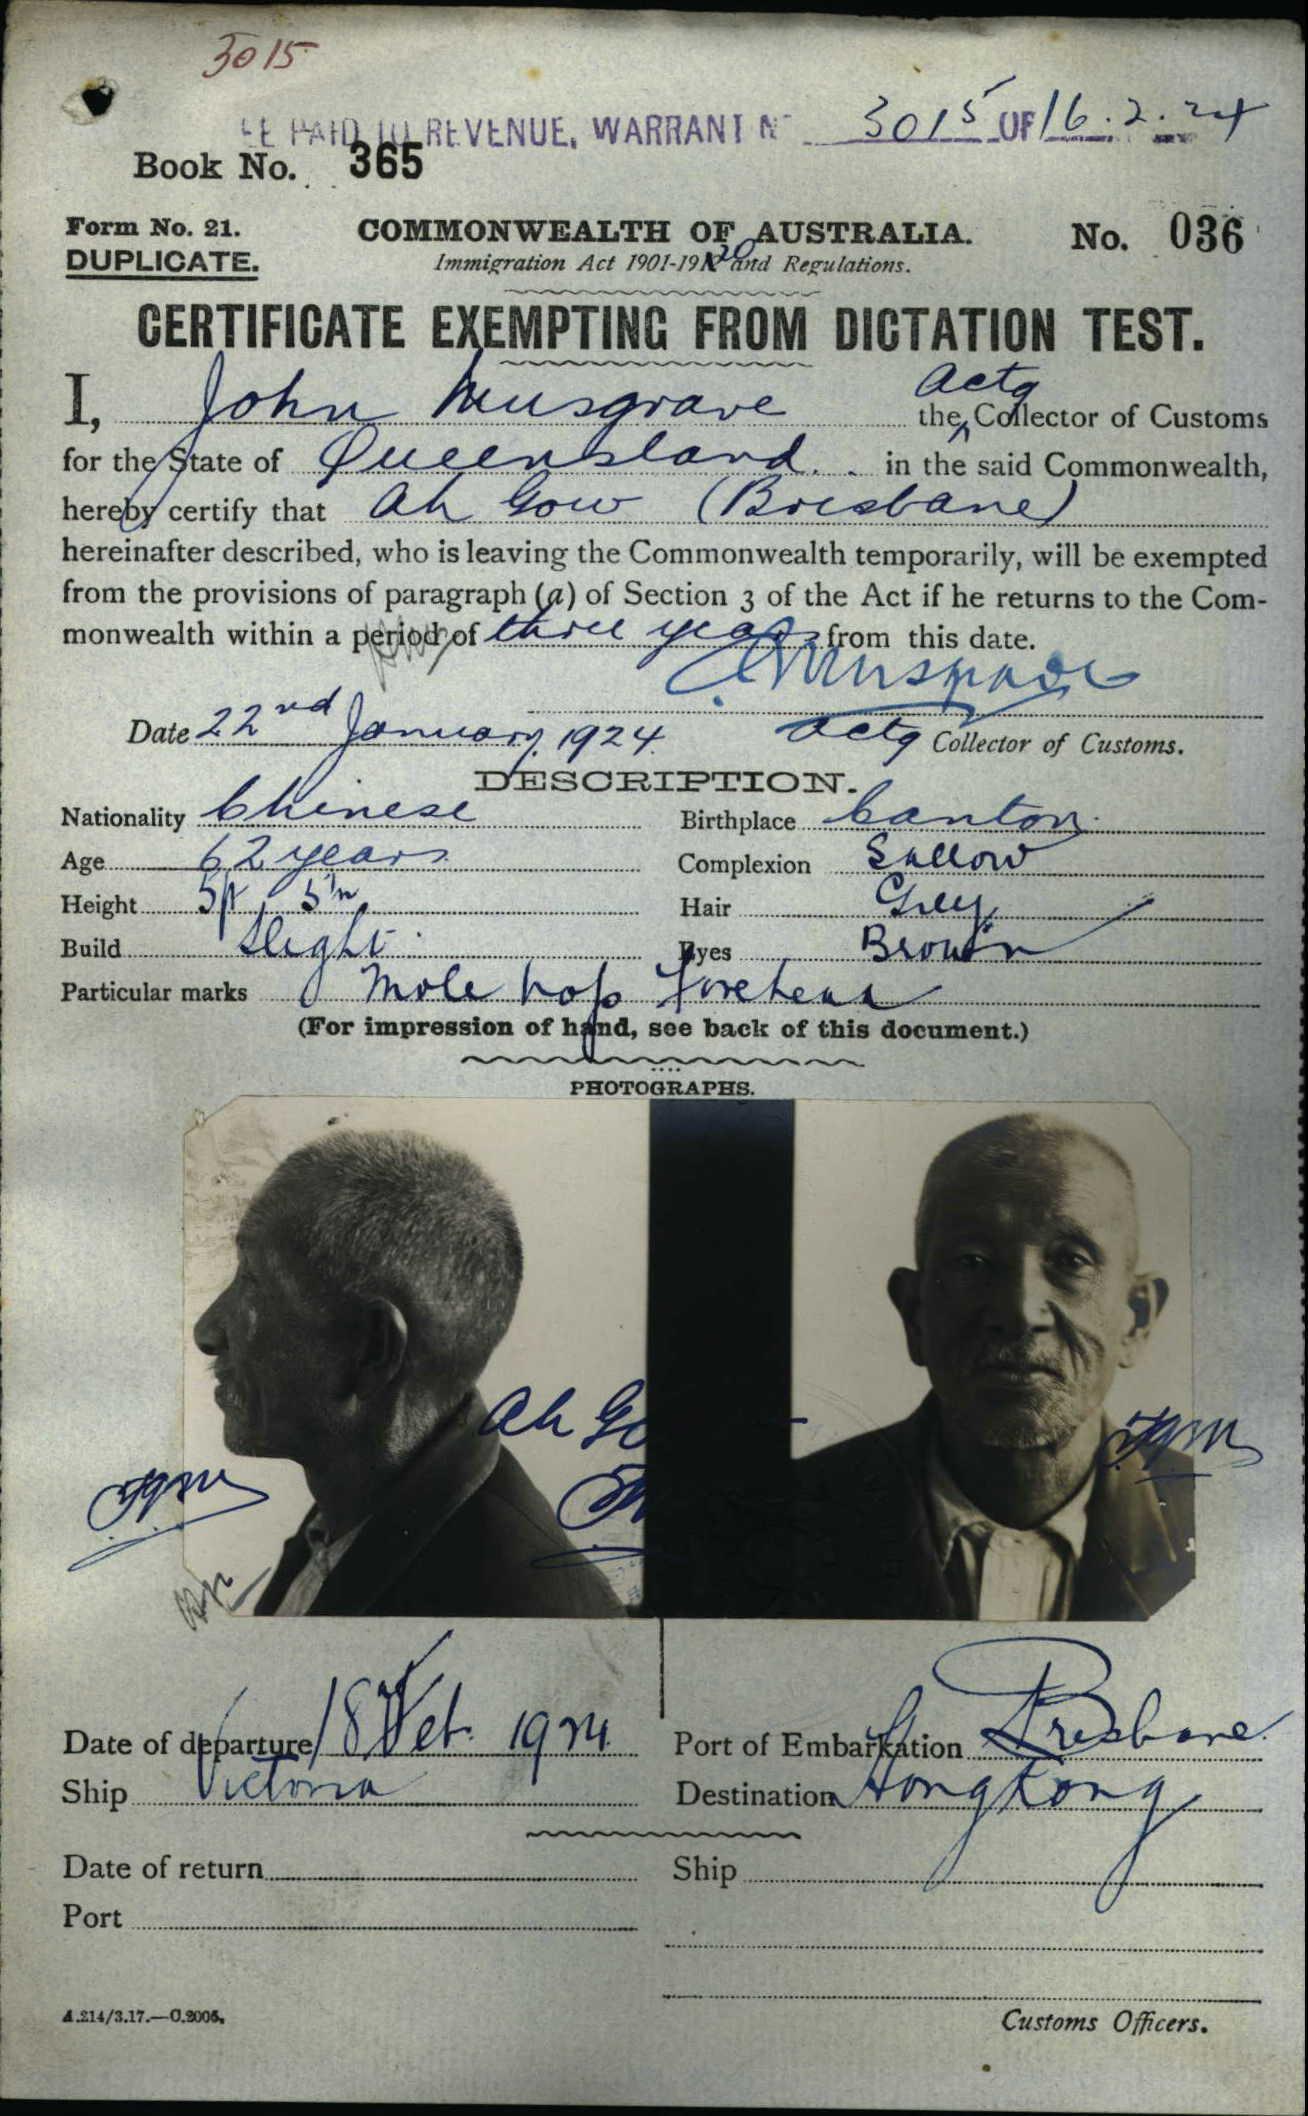 3015
FEE PAID TO REVENUE, WARRANT No 3015 OF 16.2.24
Book No. 365
Form No. 21. COMMONWEALTH OF AUSTRALIA. No. 036
DUPLICATE. Immigration Act 1901-1920 and Regulations.
CERTIFICATE EXEMPTING FROM DICTATION TEST.
I, John Musgrave the Actg Collector of Customs
for the State of Queensland in the said Commonwealth,
hereby certify that Ah Gow (Brisbane)
hereinafter described, who is leaving the Commonwealth temporarily, will be exempted
from the provisions of paragraph (a) of Section 3 of the Act if he returns to the Com-
monwealth within a period of three years from this date.
Musgrave
Date 22nd January, 1924. Actg Collector of Customs.
DESCRIPTION.
Nationality Chinese Birthplace Canton
Age 62 years Complexion Sallow
Height 5ft 5in Hair Grey
Build Slight Eyes Brown
Particular marks Mole top Forehead
(For impression of hand, see back of this document.)
PHOTOGRAPHS.
Ah Go
Date of departure 18 Feb. 1924 Port of Embarkation Brisbane
Ship Victoria Destination Hong Kong
Date of return Ship
Port
A.214/3.17.—C.2005. Customs Officers.